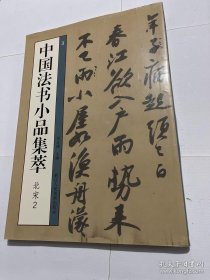 年子病起頭已白
春江欲入户雨勢来
不已雨小屋如漁舟濛
中国法书小品集萃
北宋2